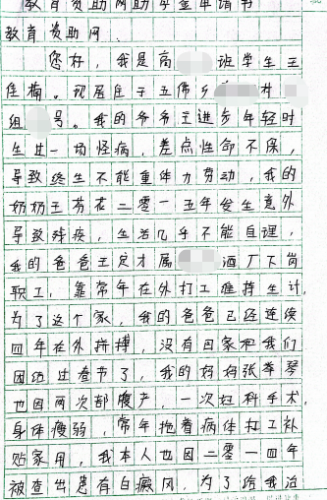 教育资助网助学金申请书
教育资助网:
您好,我是高 班学生王
佳梅。现居住于五伟乡 村
组 号。我的爷爷王进步年轻时
生过一场怪病,差点性命不保,
导致终生不能重体力劳动,我的
奶奶王芬在二零一五年发生意外
导致残疾,生活几乎不能自理,
我的爸爸王足才属 酒厂下岗
职工,靠常年在外打工维持生计
为了这个家,我的爸爸已经连续
四年在外拼搏,没有回家和我们
团结过春节了,我的妈妈张琴
也因两次部腹产,一次妇科手术,
身体瘦弱,常年拖着病体打工补
贴家用,我本人也因二零一四年
被查出患有白癜风,为了给我治